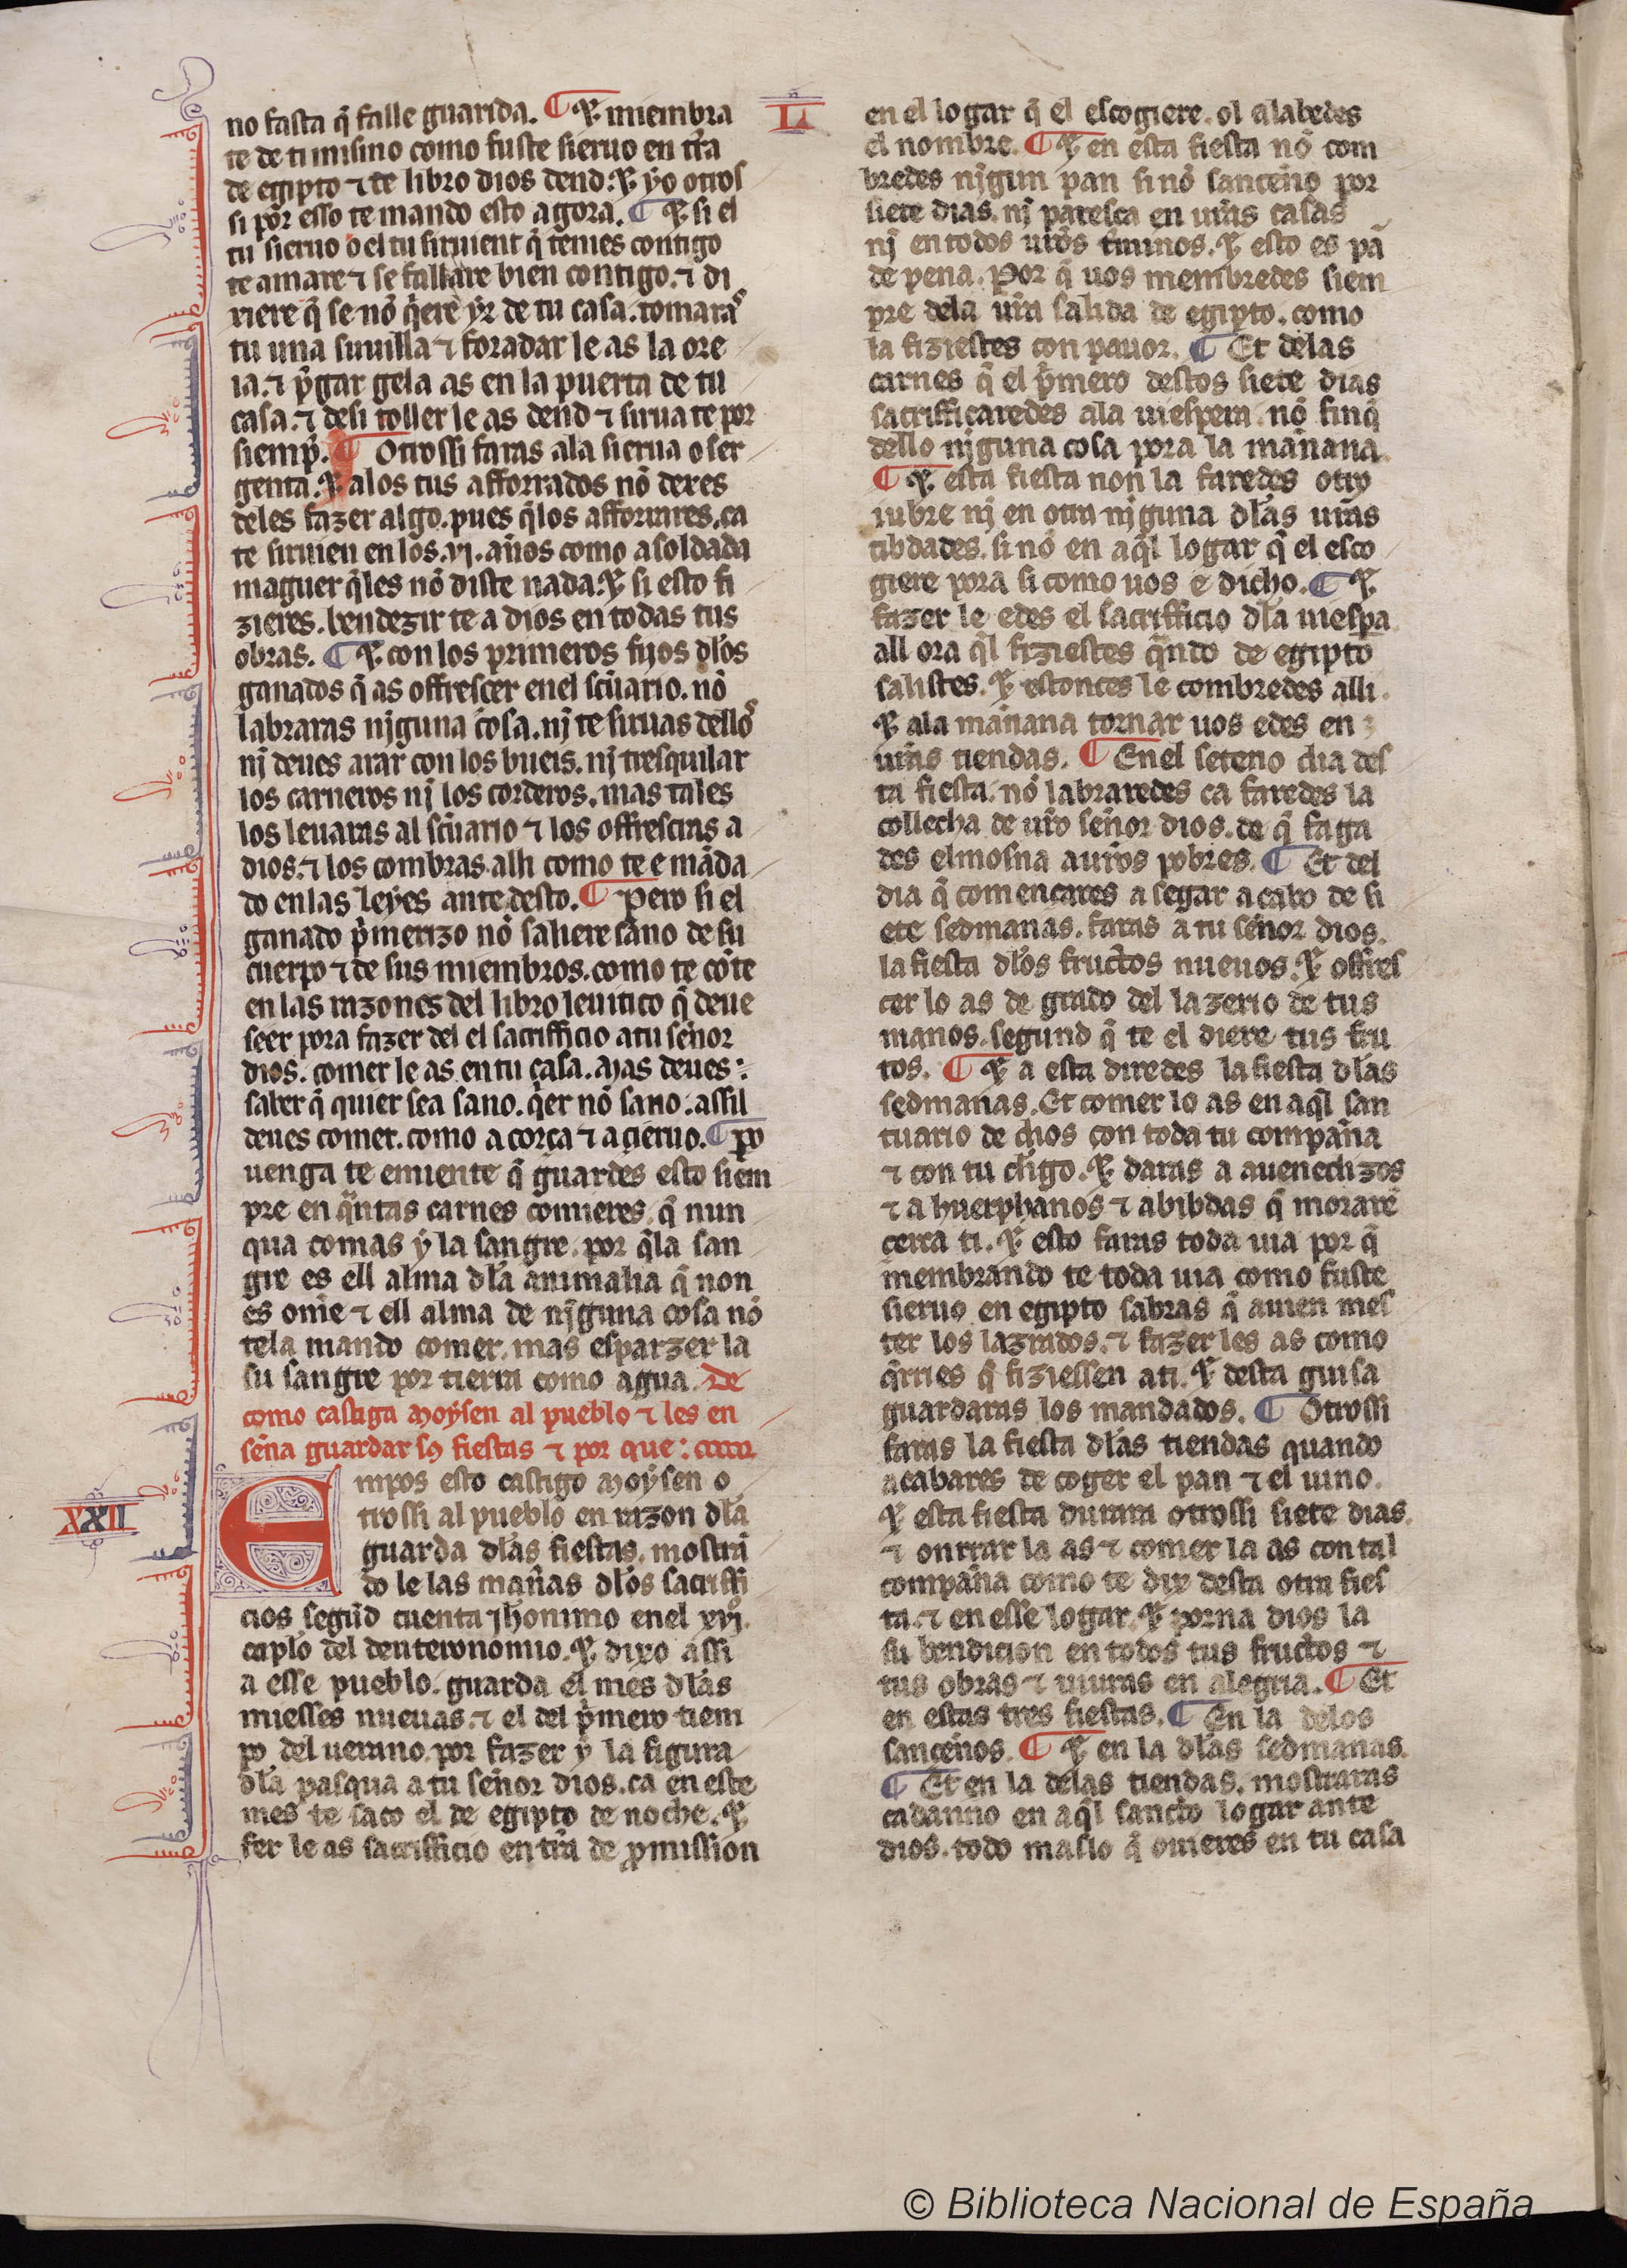 no fasta q̃ falle guarida. ¶ ⁊ miembra
te de ti mismo como fuste sieruo en tr̃a
de egipto ⁊ te libro dios dend: ⁊ yo otros
si por esso te mando esto agora. ¶ ⁊ si el
tu sieruo o el tu siruient q̃ tenies contigo
te amare ⁊ se fallare bien contigo. ⁊ di
xiere q̃ se nõ q̃ere yr de tu casa. tomaras
tu una suuilla ⁊ foradar le as la ore
ia. ⁊ p̃gar gela as en la puerta de tu
casa. ⁊ desi toller le as dend ⁊ sirua te por
siemp̃. ¶ Otrossi faras ala sierua o ser
genta. ⁊ alos tus afforrados nõ dexes
deles fazer algo. pues q̃los afforrares. ca
te siruien en los .vj. años como a soldada
maguer q̃les nõ diste nada. ⁊ si esto fi
zieres. bendezir te a dios en todas tus
obras. ¶ ⁊ con los primeros fijos dl̃os
ganados q̃ as offrescer enel sc̃uario. nõ
labraras njguna cosa. nj te siruas dellos
nj deues arar con los bueis. nj tresquilar
los carneros nj los corderos. mas tales
los leuaras al sc̃uario ⁊ los offresciras a
dios. ⁊ los combras alli como te e mãda
do en las leyes ante desto. ¶ Pero si el
ganado p̃merizo nõ saliere sano de su
cuerpo ⁊ de sus miembros. como te cõte
en las razones del libro leuitico q̃ deue
seer pora fazer del el sacrifficio a tu señor
dios. comer le as en tu casa. Mas deues:
saber q̃ quier sea sano. q̃er nõ sano. assil
deues comer. como a corça ⁊ a cieruo. ¶ Po
uenga te emiente q̃ guardes esto siem
pre en q̃ntas carnes comieres. q̃ nun
qua comas y la sangre. por q̃la san
gre es ell alma dl̃a animalia q̃ non
es om̃e ⁊ ell alma de njguna cosa nõ
tela mando comer. mas esparzer la
su sangre por tierra como agua. De
como castiga Moysen al pueblo ⁊ les en
seña guardar sꝯ fiestas ⁊ por que:
XXII
Empos esto castigo Moysen o
trossi al pueblo en razon dl̃a
guarda dl̃as fiestas. mostrã
do le las mañas dl̃os sacriffi
cios segũd cuenta jh̃onimo enel xvj.
capl̃o del deuteronomio. ⁊ dixo assi
a esse pueblo. guarda el mes dl̃as
miesses nueuas. ⁊ el del p̃mero tiem
po del uerano. por fazer y la figura
dl̃a pasqua a tu señor dios. ca en este
mes te saco el de egipto de noche. ⁊
fer le as sacrifficio en tr̃a de ꝓmission
L
en el logar q̃ el escogiere. ol alabedes
el nombre. ¶ ⁊ en esta fiesta nõ com
bredes njgun pan sinõ sanceño por
siete dias. nj paresca en ur̃as casas
nj en todos ur̃os t̃minos. ⁊ esto es pã
de pena. Por q̃ uos membredes siem
pre dela ur̃a salida de egipto. como
la fiziestes con pauor. ¶ Et delas
carnes q̃ el p̃mero destos siete dias
sacrifficaredes ala uiespera. nõ finq̃
dello njguna cosa pora la mañana.
¶ ⁊ esta fiesta non la faredes otro
iubre nj en otra njguna dl̃as ur̃as
cibdades. sinõ en aq̃l logar q̃ el esco
giere pora si como uos e dicho. ¶ ⁊
fazer le edes el sacrifficio dl̃a uiesꝑa
all ora q̃l fiziestes q̃ndo de egipto
salistes. ⁊ estonces le combredes alli.
⁊ ala mañana tornar uos edes en
ur̃as tiendas. ¶ Enel seteno dia des
ta fiesta. nõ labraredes ca faredes la
collecha de ur̃o señor dios. de q̃ faga
des elmosna a uur̃os pobres. ¶ Et del
dia q̃ començares a segar a cabo de si
ete sedmanas. faras a tu señor dios.
la fiesta dl̃os fructos nueuos. ⁊ offres
cer lo as de grado del lazerio de tus
manos. segund q̃ te el diere tus fru
tos. ¶ ⁊ a esta diredes la fiesta dl̃as
sedmanas. Et comer lo as en aq̃l san
tuario de dios con toda tu compaña
⁊ con tu cl̃igo. ⁊ daras a auenedizos
⁊ a huerphanos ⁊ a bibdas q̃ morarẽ
cerca ti. ⁊ esto faras toda uia por q̃
membrando te toda uia como fuste
sieruo en egipto sabras q̃ auien mes
ter los lazrados. ⁊ fazer les as como
q̃rries q̃ fiziessen ati. ⁊ desta guisa
guardaras los mandados. ¶ Otrossi
faras la fiesta dl̃as tiendas quando
acabares de coger el pan ⁊ el uino.
⁊ esta fiesta durara otrossi siete dias.
⁊ onrrar la as ⁊ comer la as con tal
compaña como te dix desta otra fies
ta. ⁊ en esse logar. ⁊ porna dios la
su bendicion en todos tus fructos ⁊
tus obras ⁊ uiuras en alegria. ¶ Et
en estas tres fiestas. ¶ En la delos
sanceños. ¶ ⁊ en la dl̃as sedmanas.
¶ Et en la delas tiendas. mostraras
cadanno en aq̃l sancto logar ante
dios. todo maslo q̃ ouieres en tu casa
© Biblioteca Nacional de España